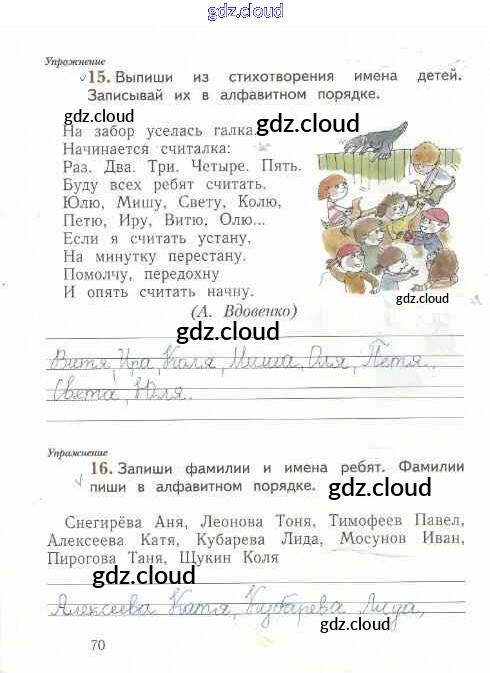 gdz.cloud
Упражнение
15. Выпиши из стихотворения имена детей.
Записывай их в алфавитном порядке.
gdz.cloud
На забор уселась галка.
gdz.cloud
Начинается считалка:
Раз. Два. Три. Четыре. Пять.
Буду всех ребят считать.
Юлю, Мишу, Свету, Колю,
Петю, Иру, Витю, Олю...
Если я считать устану,
На минутку перестану.
Помолчу, передохну
И опять считать начну.
gdz.cloud
(А. Вдовенко)
gdz.cloud
Витя, Ира, Коля, Миша, Оля, Петя,
Света, Юля.
Упражнение
16. Запиши фамилии и имена ребят. Фамилии
пиши в алфавитном порядке.
gdz.cloud
Снегирёва Аня, Леонова Тоня, Тимофеев Павел,
Алексеева Катя, Кубарева Лида, Мосунов Иван,
Пирогова Таня, Щукин Коля
gdz.cloud
Алексеева Катя, Кубарева Лида,
gdz.cloud
70
gdz.cloud